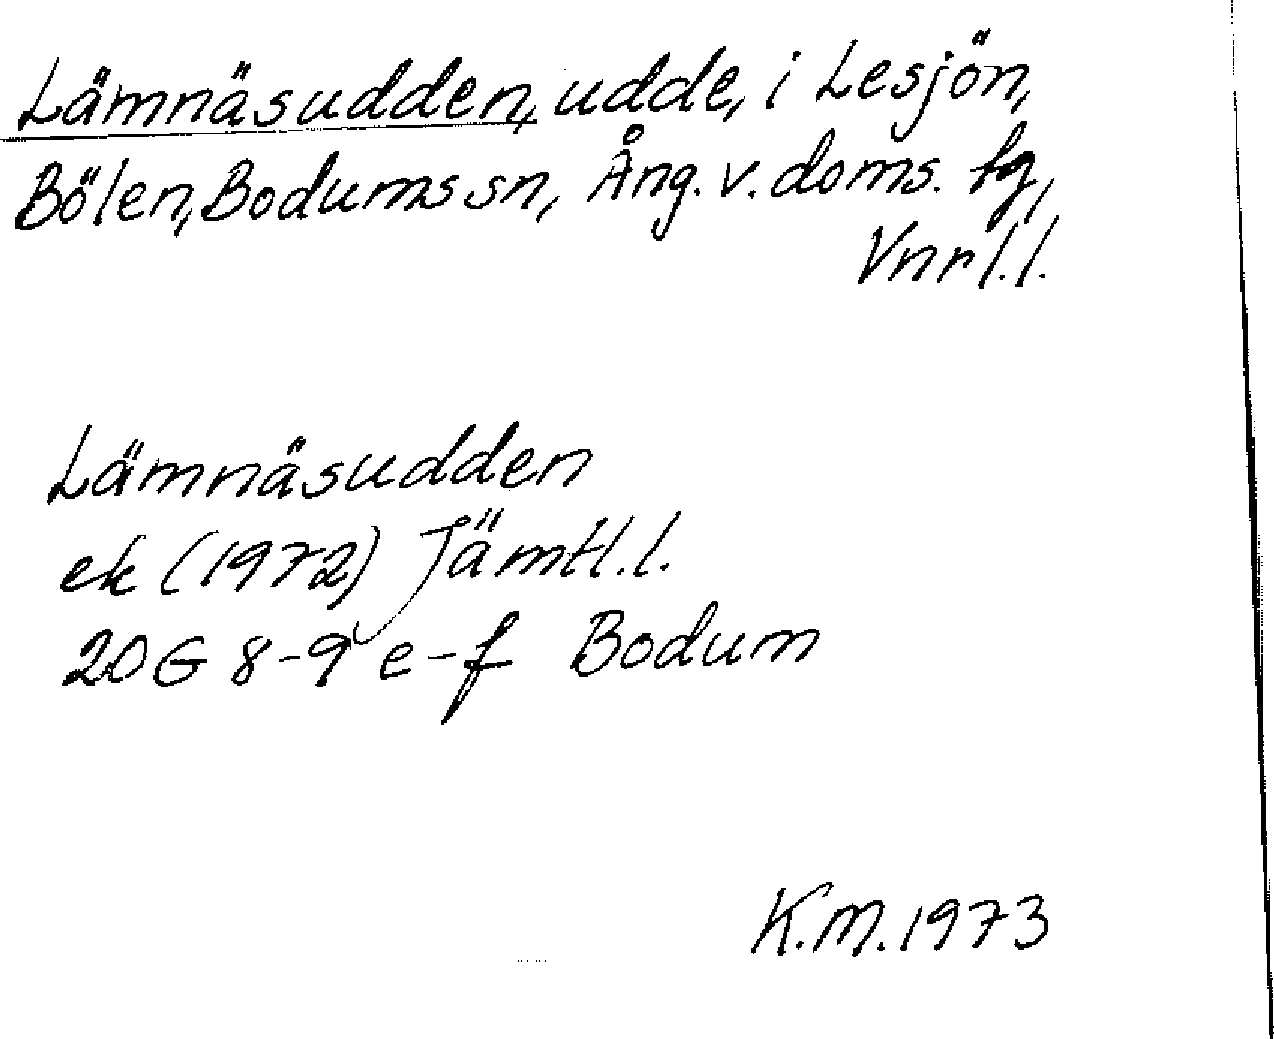 Lämnäsudden, udde, i Lesjön,
Bölen, Bodums sn, Ång. v. doms. tg,
Vnrl. l.
Lämnäsudden
ek (1972) Jämtl. l.
20G 8-9 e-f Bodum
K.M. 1973